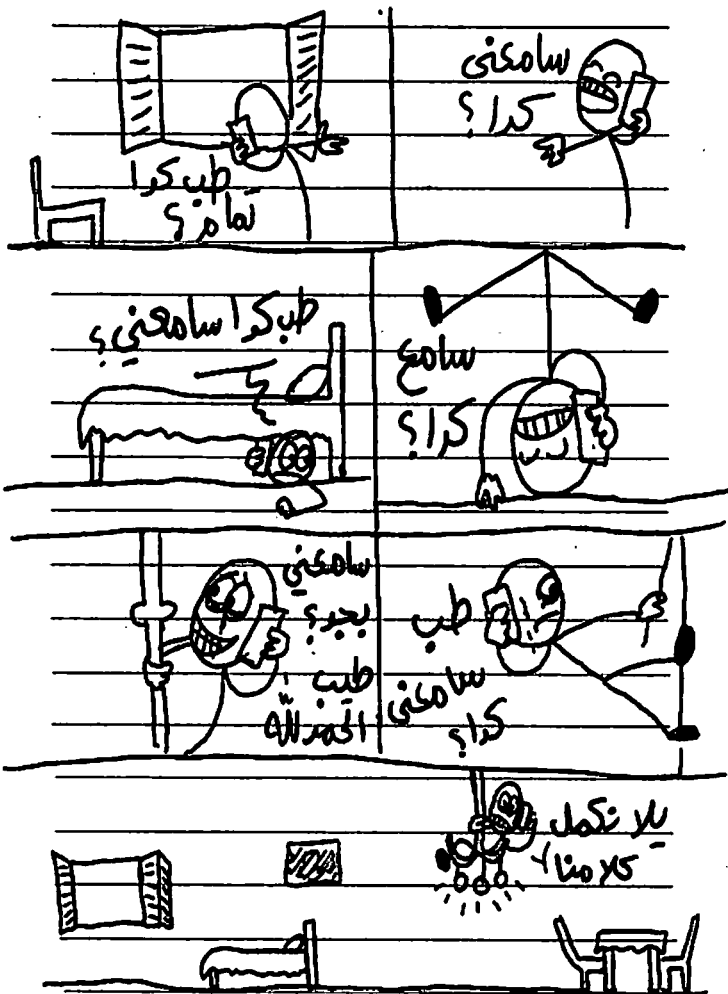 سامعني
كدا؟
طب كدا
تمام؟
سامع
كدا؟
طب كدا سامعني؟
طب
سامعني
كدا؟
سامعني
بجد؟
طيب
الحمد لله
يلا نكمل
كلامنا